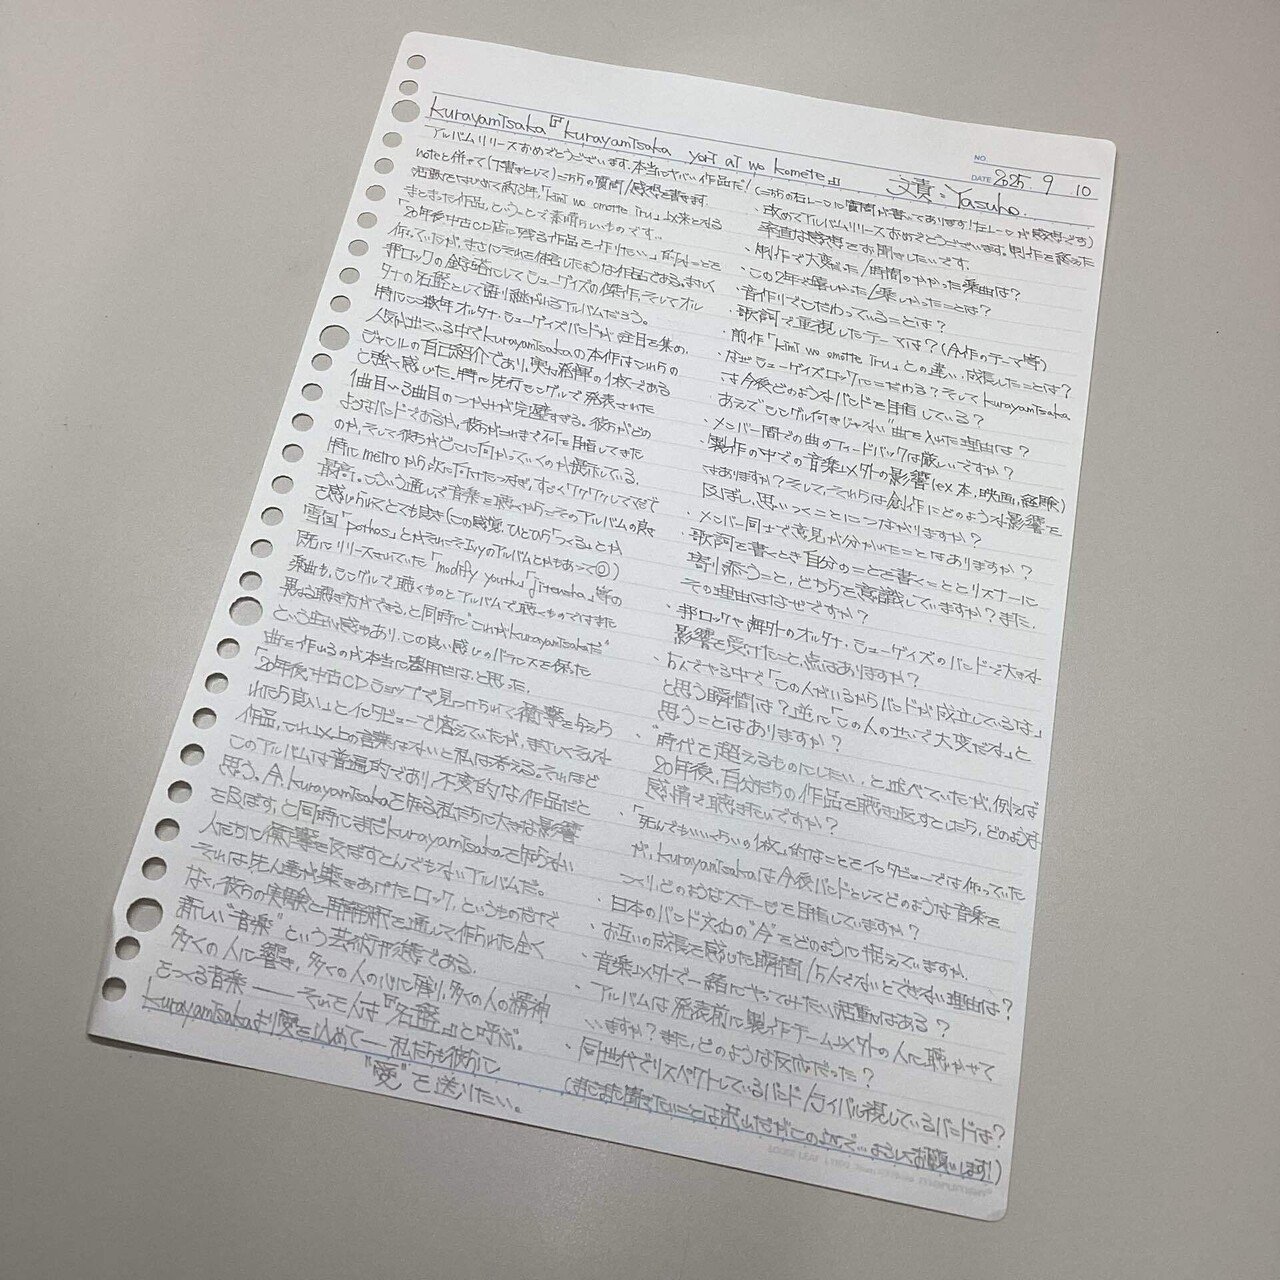 kurayamisaka『kurayamisaka yori ai wo komete』
NO.
DATE 2025. 9 10
文責：Yasuho.
アルバムリリースおめでとうございます。本当にヤバい作品だ！
noteと併せて(下書きとして)こちらの質問/感想を書きます。
活動をはじめて約3年、「kimi wo omotte iru」以来となる
まとまった作品、ということで素晴らしいものです…
「20年後中古CD店に残る作品を作りたい」的なことを
仰っていたが、まさにそれを体言したような作品である。まさしく
邦ロックの金字塔にしてシューゲイズの傑作、そしてオル
タナの名盤として語り継がれるアルバムだろう。
特にここ数年オルタナ、シューゲイズバンドが注目を集め、
人気が出ている中でkurayamisakaの本作はこれらの
ジャンルの自己紹介であり、実力発揮の1枚である
と強く感じた。特に先行シングルで発表された
1曲目いる曲目のつかみが完璧すぎる。彼らがどの
ようなバンドであるか、彼らがこれまで何を目指してきた
のか、そして彼らがどこに向かっていくのか提示している。
特にmetroから次に向けたつなぎ、すごくワクワクしてて
最高!。こういう通しで音楽を聴くからこそのアルバムの良さ
を感じられてとても良き(この感覚、ひとひら「つくる」とか
雪国「pothos」とかそれこそIvyのアルバムとかもあって◎)
既にリリースされていた「modify youth」「jitensha」等の
楽曲も、シングルで聴くものとアルバムで聴くものではまた
異なる聴き方ができる、と同時に"これがkurayamisakaだ"
という生い感もあり、この良い感じのバランスを保った
曲を作れるのが本当に器用だな、と思った。
「20年後中古CDショップで見つけられて衝撃を与えら
れたら良い」とインタビューで答えていたが、まさしくそんな
作品。これ以上の言葉はないと私は考える。それほど
このアルバムは普遍的であり、不変的な作品だと
思う。今、kurayamisakaを知る私たちに大きな影響
を及ぼす、と同時にまだkurayamisakaを知らない
人たちに衝撃を及ぼすとんでもないアルバムだ。
それは先人達が築きあげたロック、というものだけで
なく、彼らの実験と再解釈を通して作られた全く
新しい"音楽"という芸術形態である。
多くの人に響き、多くの人の心に残り、多くの人の精神
をつくる音楽——それを人は『名盤』と呼ぶ。
kurayamisakaより愛を込めて——私たちも彼らに
"愛"を送りたい。
(こちらの右レーンに質問が書いてあります！左レーンが感想です)
・改めてアルバムリリースおめでとうございます。制作を終えた
率直な感想をお聞きしたいです。
・制作で大変だった/時間のかかった楽曲は？
・この2年で嬉しかった/楽しかったことは？
・音作りでこだわっていることは？
・歌詞で重視したテーマは？(今作のテーマ等)
・前作「kimi wo omotte iru」との違い、成長したことは？
・なぜシューゲイズロックにこだわる？そしてkurayamisaka
は今後どのようなバンドを目指している？
・あえて"シングル向きじゃない"曲を入れた理由は？
・メンバー間での曲のフィードバックは厳しいですか？
・製作の中での音楽以外の影響(ex 本、映画、経験)
はありますか？そして、それらは創作にどのような影響を
及ぼし、思いつくことにつながりますか？
・メンバー同士で意見が分かれたことはありますか？
・歌詞を書くとき自分のことを書くこととリスナーに
寄り添うこと、どちらを意識していますか？また、
その理由はなぜですか？
・邦ロックや海外のオルタナ、シューゲイズのバンドで大きな
影響を受けたこと、点はありますか？
・5人でやる中で「この人がいるからバンドが成立しているな」
と思う瞬間は？逆に「この人のせいで大変だな」と
思うことはありますか？
・"時代を超えるものにしたい"と述べていたが、例えば
20年後、自分たちの作品を聴き返すとしたら、どのような
感情で聴きたいですか？
・「死んでもいいくらいの1枚」的なことをインタビューでは仰っていた
が、kurayamisakaは今後バンドとしてどのような音楽を
つくり、どのようなステージを目指していますか？
・日本のバンド文化の"今"をどのように捉えていますか。
・お互いの成長を感じた瞬間/5人でないとできない理由は？
・音楽以外で一緒にやってみたい活動はある？
・アルバムは発表前に製作チーム以外の人に聴かせて
いますか？また、どのような反応だった？
・同世代でリスペクトしているバンド/ライバル視しているバンドは？
(まだまだ聞きたいことは沢山だがこの辺で…よろしくお願いします！)